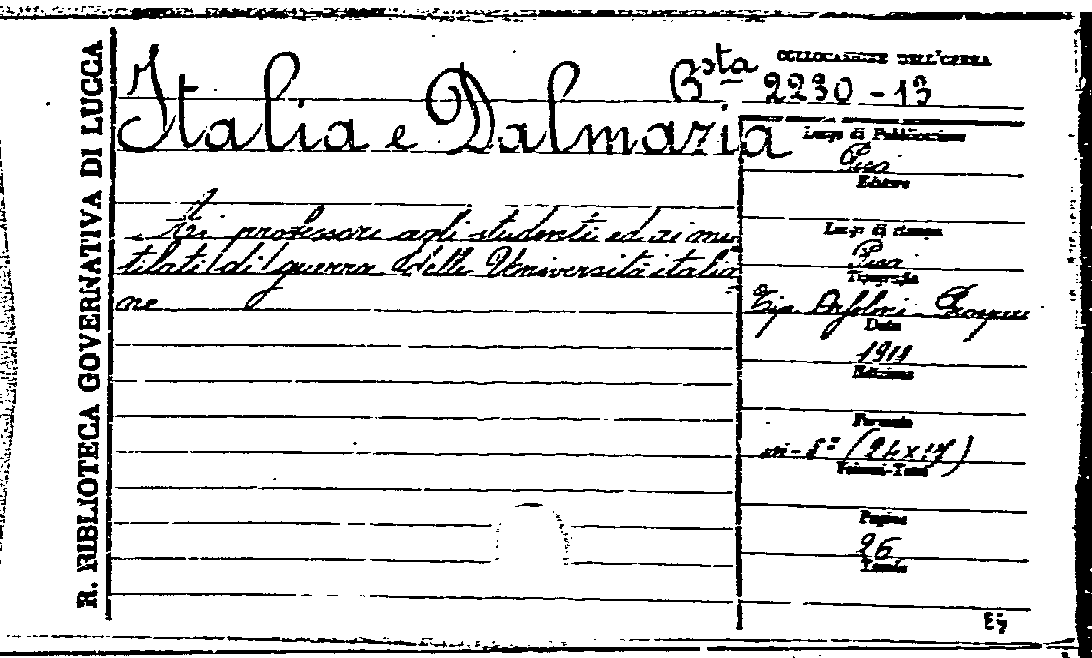 R. BIBLIOTECA GOVERNATIVA DI LUCCA
Italia e Dalmazia
Bsta 2230 - 13
COLLOCAZIONE DELL'OPERA
Ai professori agli studenti ed ai mu-
tilati di guerra delle Università italia-
ne
Luogo di Pubblicazione
Pisa
Editore
Luogo di stampa
Pisa
Tipografia
Tip. Orsolini - Prosperi
Data
Edizione
Formato
in-8º (24x17)
Volumi-Tomi
Pagine
26
Tavole